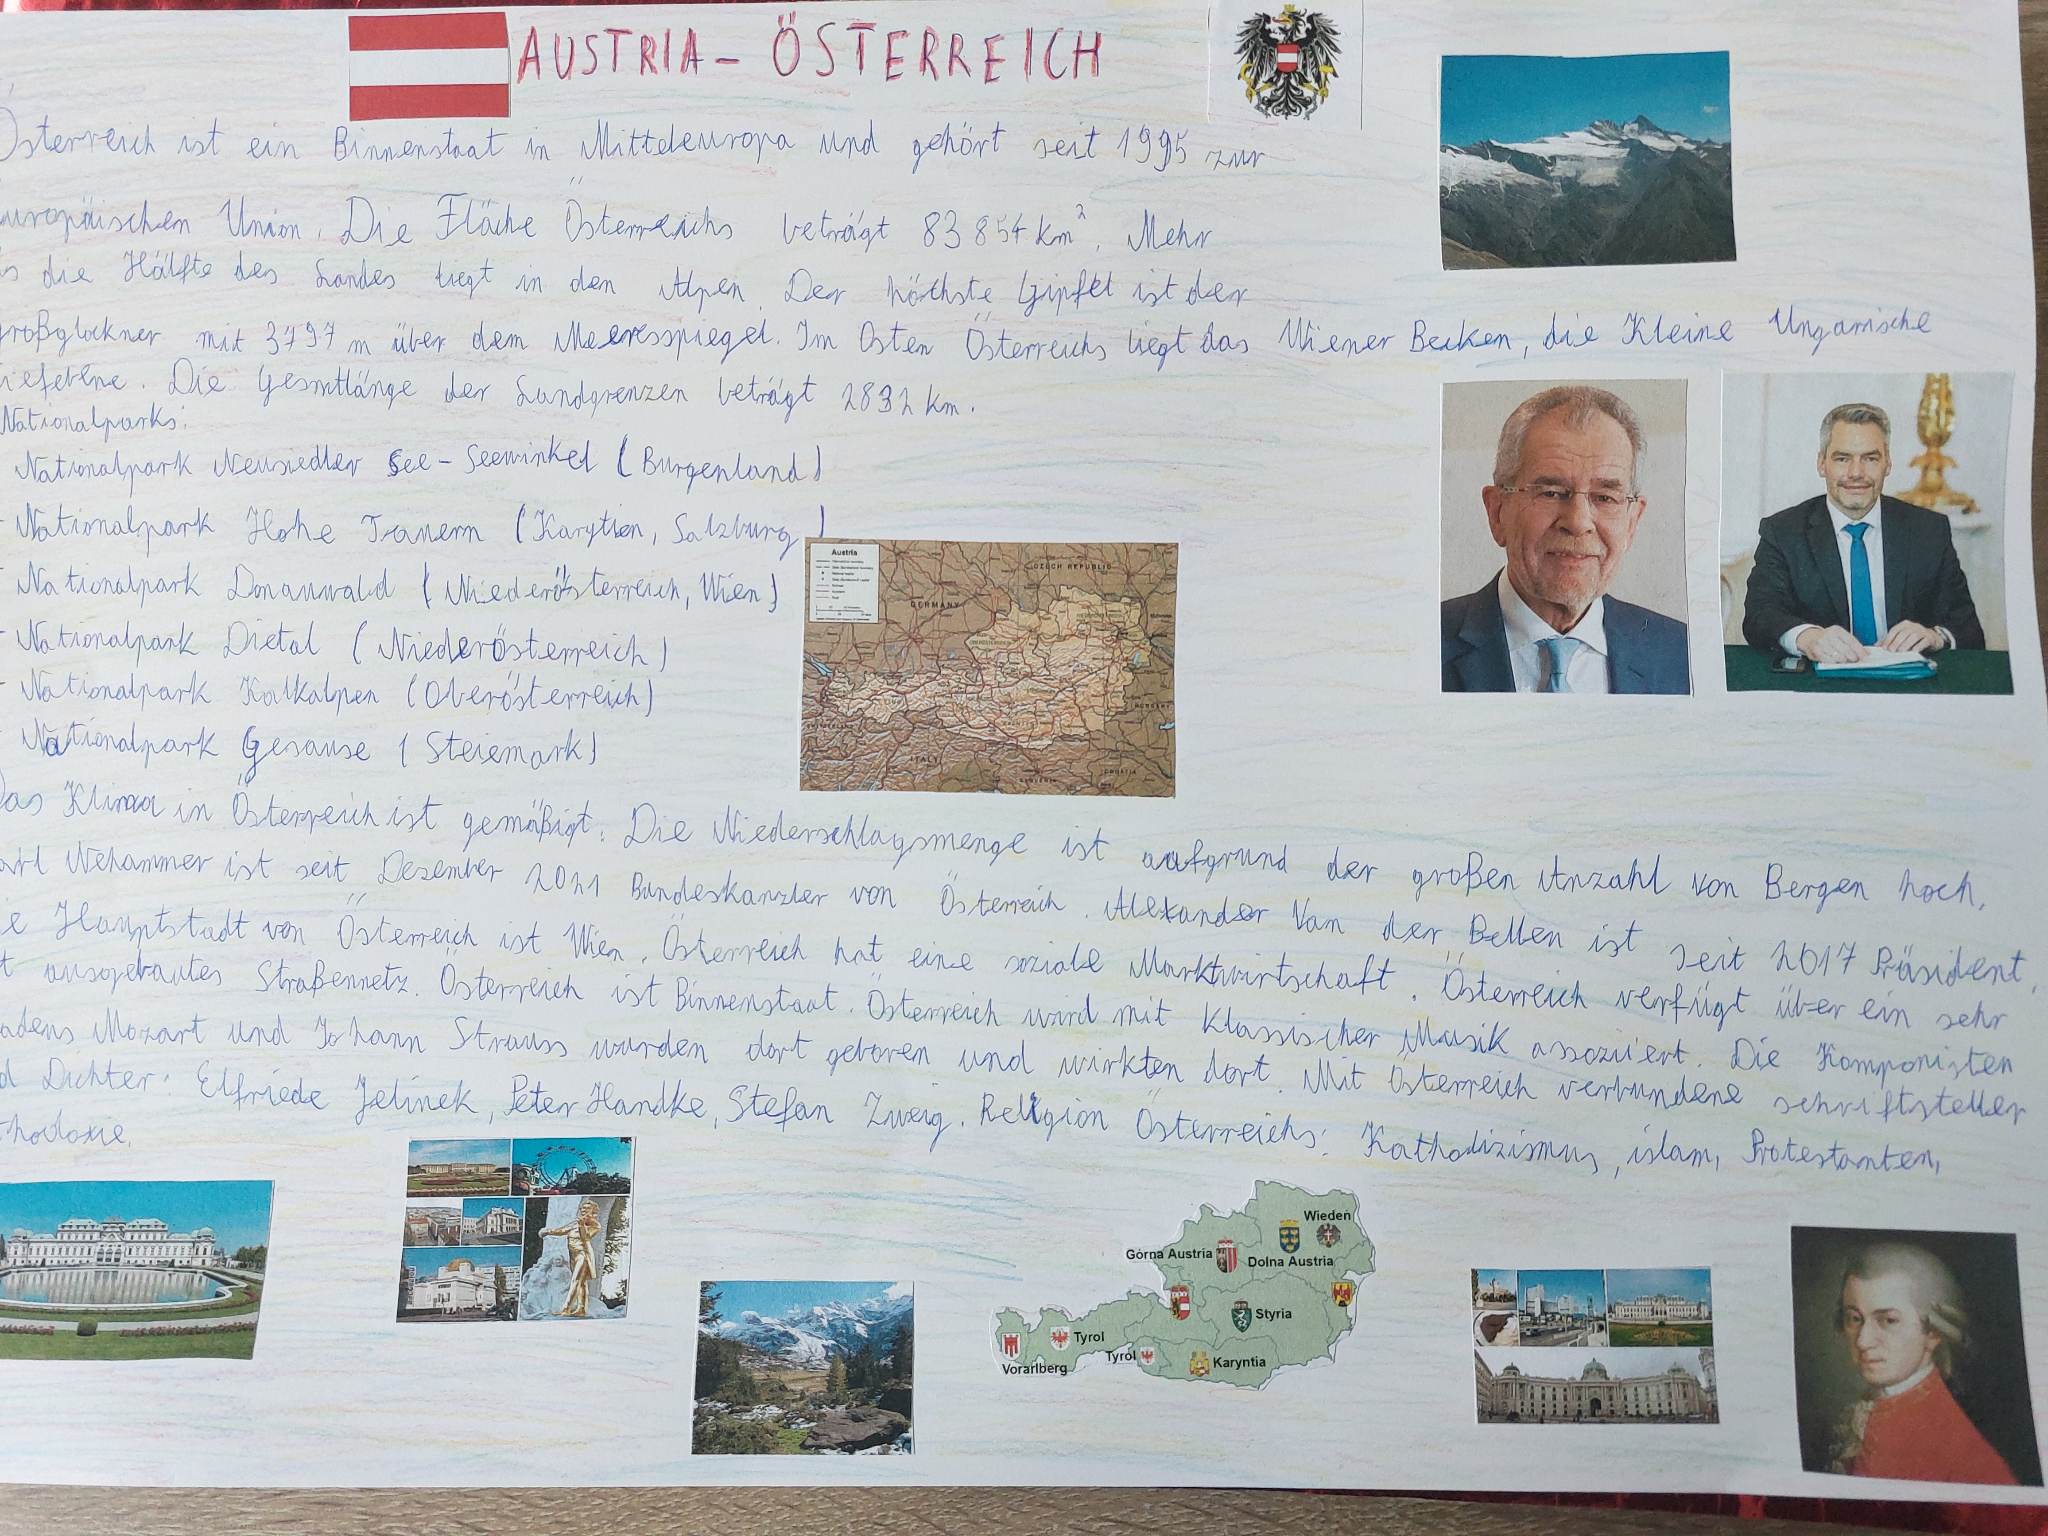 AUSTRIA – ÖSTERREICH
Österreich ist ein Binnenstaat in Mitteleuropa und gehört seit 1995 zur
europäischen Union. Die Fläche Österreichs beträgt 83 854 km². Mehr
die Hälfte des Landes liegt in den Alpen. Der höchste Gipfel ist der
großglockner mit 3797 m über dem Meeresspiegel. Im Osten Österreichs liegt das Wiener Becken, die Kleine Ungarische
Die Gesmtlänge der Landgrenzen beträgt 2832 km.
Nationalparks:
Nationalpark Neusiedler See – Seewinkel (Burgenland)
- Nationalpark Hohe Tauern (Karytien, Salzburg)
- Nationalpark Donauwald (Niederösterreich, Wien)
- Nationalpark Dietal (Niederösterreich)
- Nationalpark Kalkalpen (Oberösterreich)
- Nationalpark Gesause (Steiemark)
Das Klima in Österreich ist gemäßigt. Die Niederschlagsmenge ist aufgrund der großen Anzahl von Bergen hoch.
Nehammer ist seit Dezember 2021 Bundeskanzler von Österreich. Alexander Van der Bellen ist seit 2017 Präsident.
Hauptstadt von Österreich ist Wien. Österreich hat eine soziale Marktwirtschaft. Österreich verfügt über ein sehr
ausgebautes Straßennetz. Österreich ist Binnenstaat. Österreich wird mit klassischer Musik assoziiert. Die Komponisten
Mozart und Johann Strauss wurden dort geboren und wirkten dort. Mit Österreich verbundene schriftsteller
Dichter: Elfriede Jelinek, Peter Handke, Stefan Zweig. Religion Österreichs: Kathodizismus, islam, Protestanten,
Austria
GERMANY
CZECH REPUBLIC
ITALY
SLOVENIA
CROATIA
HUNGARY
Wiedeń
Górna Austria
Dolna Austria
Styria
Tyrol
Tyrol
Vorarlberg
Karyntia